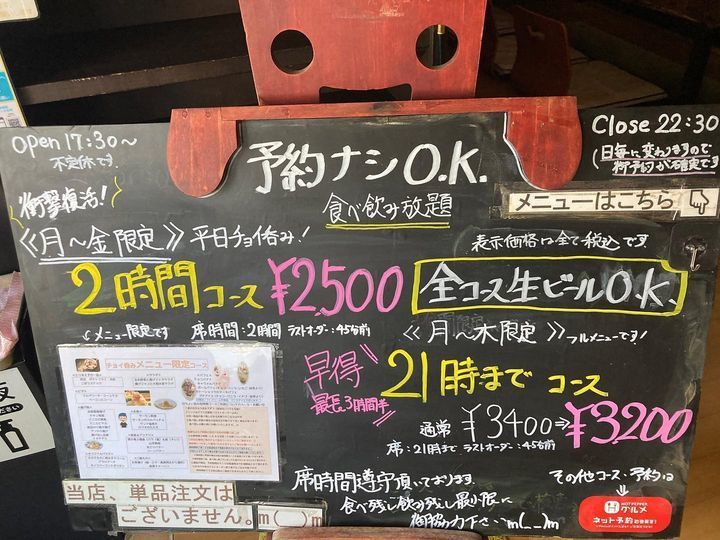 open 17:30〜
不定休です
Close 22:30
(日毎に変わりますので
御予約が確定です
予約ナシO.K.
食べ飲み放題
メニューはこちら
衝撃復活!
《月〜金限定》平日チョイ呑み!
表示価格は全て税込です
2時間コース ¥2,500
全コース生ビールO.K.
メニュー限定です 席時間:2時間 ラストオーダー:45分前
《月〜木限定》フルメニューです!
早得
最長3時間半
21時まで コース
通常 ¥3400⇒¥3,200
席:21時まで ラストオーダー:45分前
チョイ呑みメニュー限定コース
席時間遵守頂いております。
食べ残し飲み残し最小限に
御協力下さいm(__)m
その他コース、予約は
HOT PEPPER
グルメ
ネット予約
当店、単品注文は
ございません。m(__)m